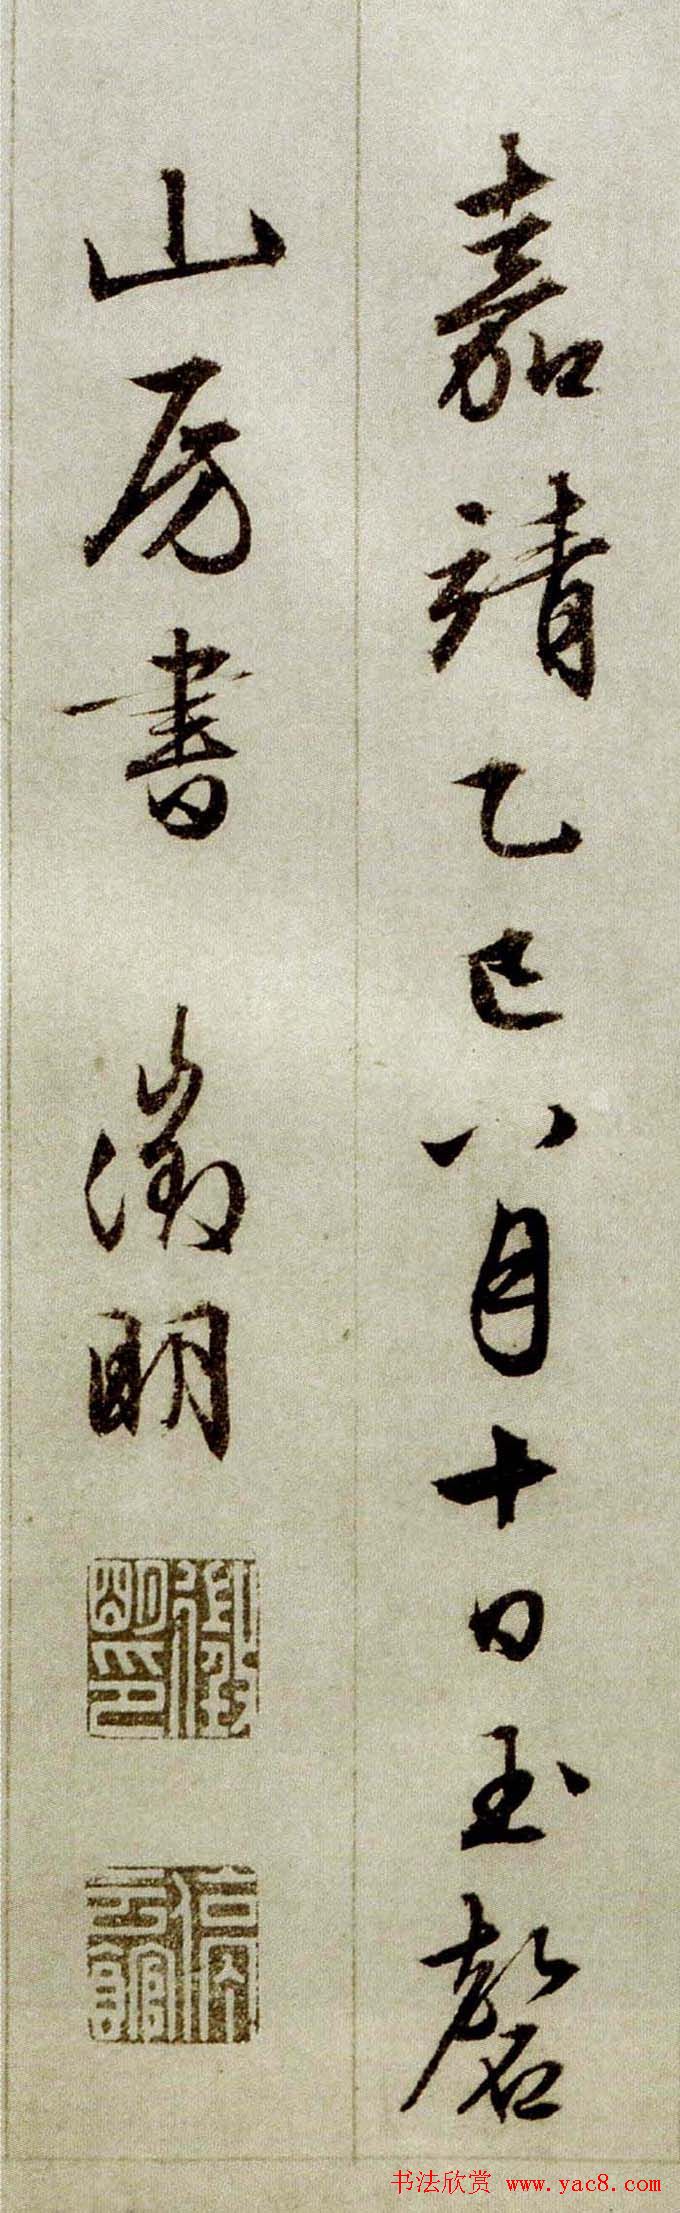 嘉靖乙巳八月十日玉磬
山房書 徵明
徵明印
停雲館
书法欣赏 www.yac8.com